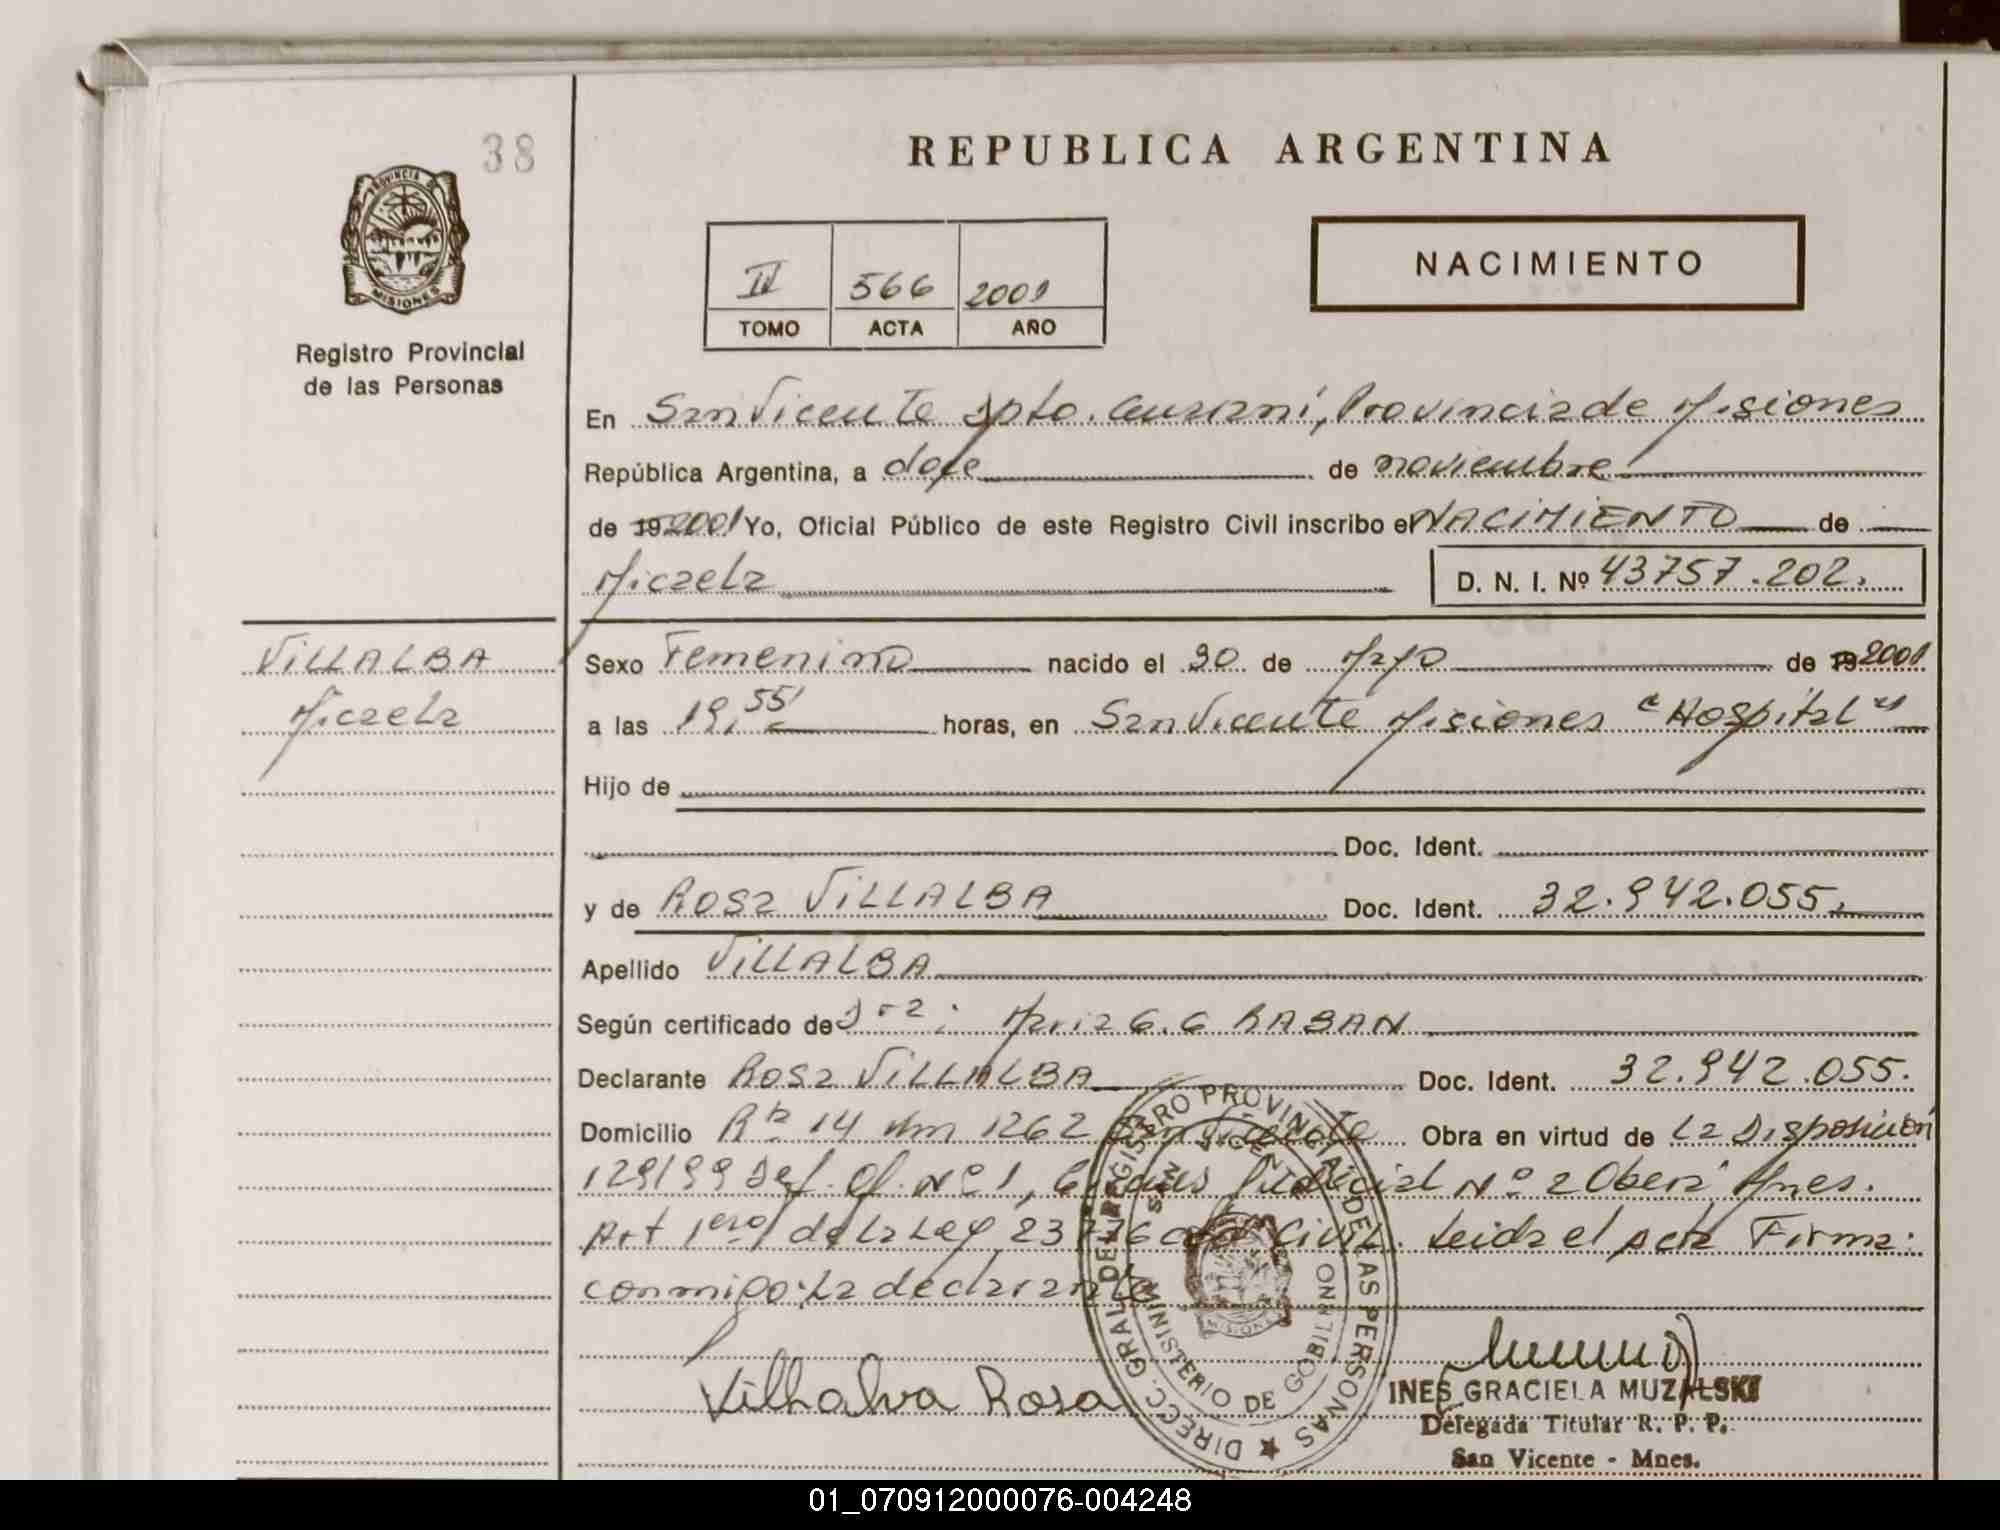 38
REPUBLICA ARGENTINA
PROVINCIA DE
MISIONES
Registro Provincial
de las Personas
II 566 2001
TOMO ACTA AÑO
NACIMIENTO
En San Vicente Dpto. Guaraní, Provincia de Misiones
República Argentina, a doce de noviembre
de 19 2001 Yo, Oficial Público de este Registro Civil inscribo el NACIMIENTO de
Micaela D. N. I. Nº 43757.202.
VILLALBA
Micaela
Sexo Femenino nacido el 30 de Mayo de 19 2001
a las 19,55' horas, en San Vicente Misiones "Hospital"
Hijo de
Doc. Ident.
y de Rosa VILLALBA Doc. Ident. 32.942.055.
Apellido VILLALBA
Según certificado de Dra: Maria G. G RABAN
Declarante Rosa VILLALBA Doc. Ident. 32.942.055.
Domicilio Rta 14 Km 1262 San Vicente Obra en virtud de La Disposición
129/99 Def. Of. Nº 1, Judicial Nº 2 Oberá Mnes.
Art 1ero de la Ley 23776 Civil. Leida el acta Firma:
conmigo: La declarante
Villhalva Rosa
DIRECC. GRAL. DEL REGISTRO PROVINCIAL DE LAS PERSONAS
SAN VICENTE
MISIONES
MINISTERIO DE GOBIERNO
INES GRACIELA MUZALSKI
Delegada Titular R. P. P.
San Vicente - Mnes.
01_070912000076-004248